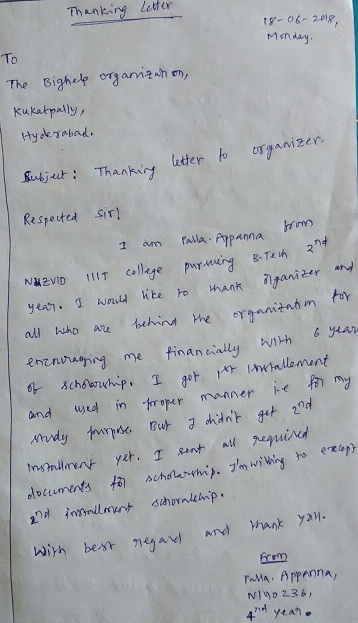 Thanking Letter
18-06-2018,
Monday.
To
The Bighelp organization,
Kukatpally,
Hyderabad.
Subject: Thanking letter to organizer.
Respected Sir!
I am Palla. Appanna from
NUZVID IIIT college pursuing B-Tech 2nd
year. I would like to thank organizer and
all who are behind the organization for
encouraging me financially with 6 years
of scholarship. I got 1st installement
and used in proper manner i.e for my
study purpose. But I didn't get 2nd
Installment yet. I sent all required
documents for scholarship. I'm willing to except
2nd installment schoralship.
With best regard and thank you.
From
Palla. Appanna,
N140236,
4nd year.